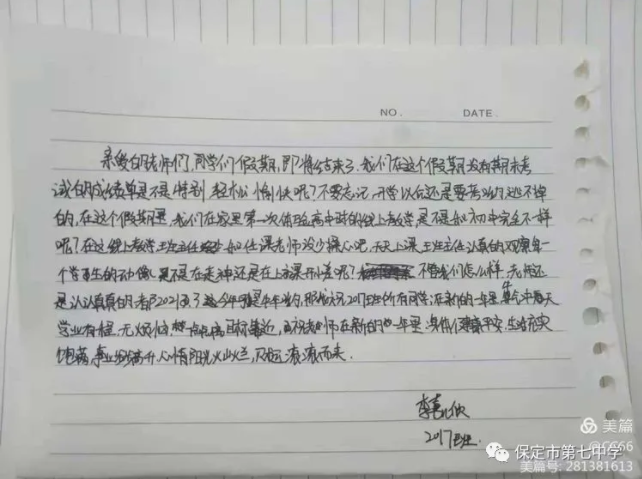 NO. DATE.
亲爱的老师们,同学们假期,即将结束了,我们在这个假期没有期末考
试的成绩单是不是特别轻松愉快呢?不要忘记,开学以后还是要考的,逃不掉
的,在这个假期里,我们在家里第一次体验高中时的线上教学是不是和初中完全不一样
呢?在这线上教学班主任和任课老师没少操心吧,天天上课班主任认真的观察每一
个学生的动像是不是在走神还是在上课开小差呢?不管我们怎么样,老师还
是认认真真的 2021 今年 年 祝 2017班的所有同学:在新的一年里
学业有成,无烦恼 老师在新的一年里,身体健康平安,生活充实
饱满,事业步步高升,心情阳光灿烂,财运滚滚而来.
李 欣
2017班.
美篇
@CC66
保定市第七中学
美篇号: 281381613